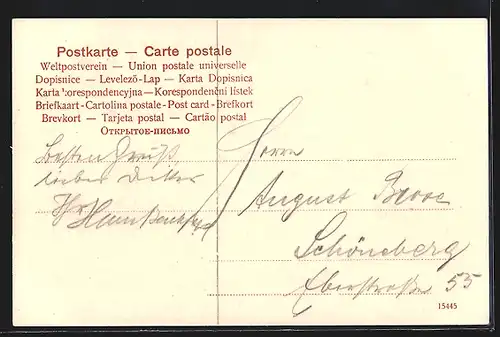 Postkarte — Carte postale
Weltpostverein — Union postale universelle
Dopisnice — Levelező-Lap — Karta Dopisnica
Karta korespondencyjna—Korespondenční lístek
Briefkaart-Cartolina postale-Post card-Brefkort
Brevkort — Tarjeta postal — Cartão postal
ОТКРЫТОЕ-ПИСЬМО
Besten Gruß
lieber
Herrn
August
Schöneberg
Eberstraße 55
15445